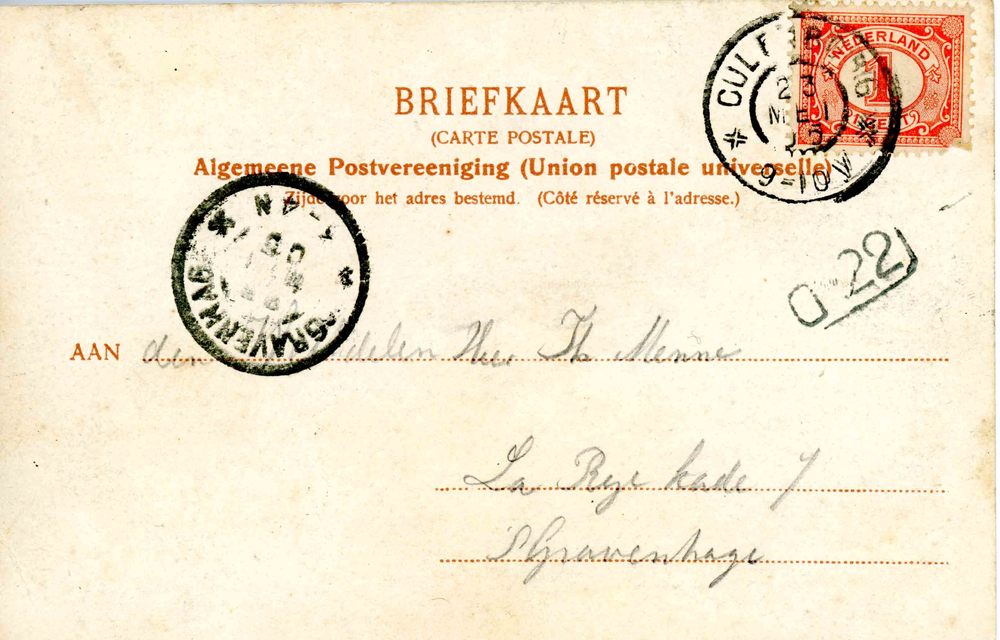 BRIEFKAART
(CARTE POSTALE)
Algemeene Postvereeniging (Union postale universelle)
Zijde voor het adres bestemd. (Côté réservé à l'adresse.)
NEDERLAND
1
CENT
CULEMBORG
9-10 V
'SGRAVENHAGE
7-8 N
22
AAN den Heer Th Menne
La Reye kade 7
S'Gravenhage